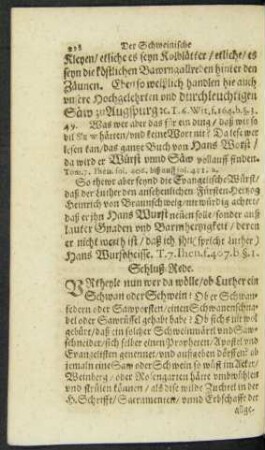 218 Der Schweinische
Kleyen / etliche es seyn Kolblätter / etliche / es
seyn die köstlichen Bawmgallreden hinter den
Zäunen. Eben so weißlich handlen hie auch
unsere Hochgelehrten und durchleuchtigen
Säw zu Augspurg
49. Was wer aber das für ein ding / daß wir so
viel härten / und keine Wort nit? Da lese wer
lesen kan / das gantz Buch von Hans Worst /
da wird er Würst unnd Säw vollauff finden.
So thewr aber seynd die Evangelische Würst /
daß der Luther den ansehenlichen Fürsten Hertzog
Heinrich von Braunschweig / nit würdig achtet /
daß er ihn Hans Wurst nennen solle / sonder auß
lauter Gnaden und Barmhertzigkeit / deren
er nicht werth ist / daß ich ihn (spricht Luther)
Hans Wursts heisse. T. 7. Ihen. f. 407. b § 1.
Schluß-Rede.
Urtheyle nun wer da wölle / ob Luther ein
Schwan oder Schwein? Ob er Schwan-
federn oder Sawporsten / einen Schwanenschna-
bel oder Sawrüssel gehabt habe? Ob sichs nit wol
gebürt / daß ein solcher Schweinmärt und Saw-
schneider / sich selber einen Propheten / Apostel und
Evangelisten genennet / und außgeben dörffen? ob
jemaln eine Saw oder Schwein so wüst im Acker /
Weinberg / oder Rosengarten hätte umbwühlen
und strülen können / als dise wilde Zuchtel in der
H. Schrifft / Sacramenten / unnd Erbschafft der